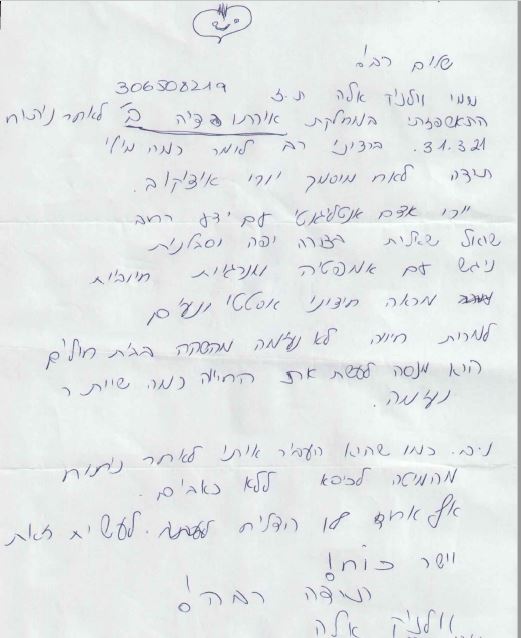 שלום רב!
שמי וולניק אלה ת.ז 306508219
התאשפזתי במחלקת אורתופדיה ב' לאחר ניתוח
31.3.21. ברצוני רב לומר כמה מילי
תודה לאח מוסמך יורי איציקוב.
יורי אדם אנטליגנטי עם ידע רחב
שואל שאלות בצורה יפה וסבלנית
ניגש עם אמפטיה ואנרגיות חיוביות
מראה חיצוני אסטטי ונעים
למרות חויה לא נעימה מהשהקה בבית חולים
הוא מנסה לעשת את החויה כמה שיותר
נעימה.
נ.ב. כמו שהוא העביר אותי לאחר ניתוח
מהמיטה לכיסא ללא כאבים.
אף אחד לו הצליח לעשות זאת
יישר כוח!
תודה רבה!
וולניק אלה